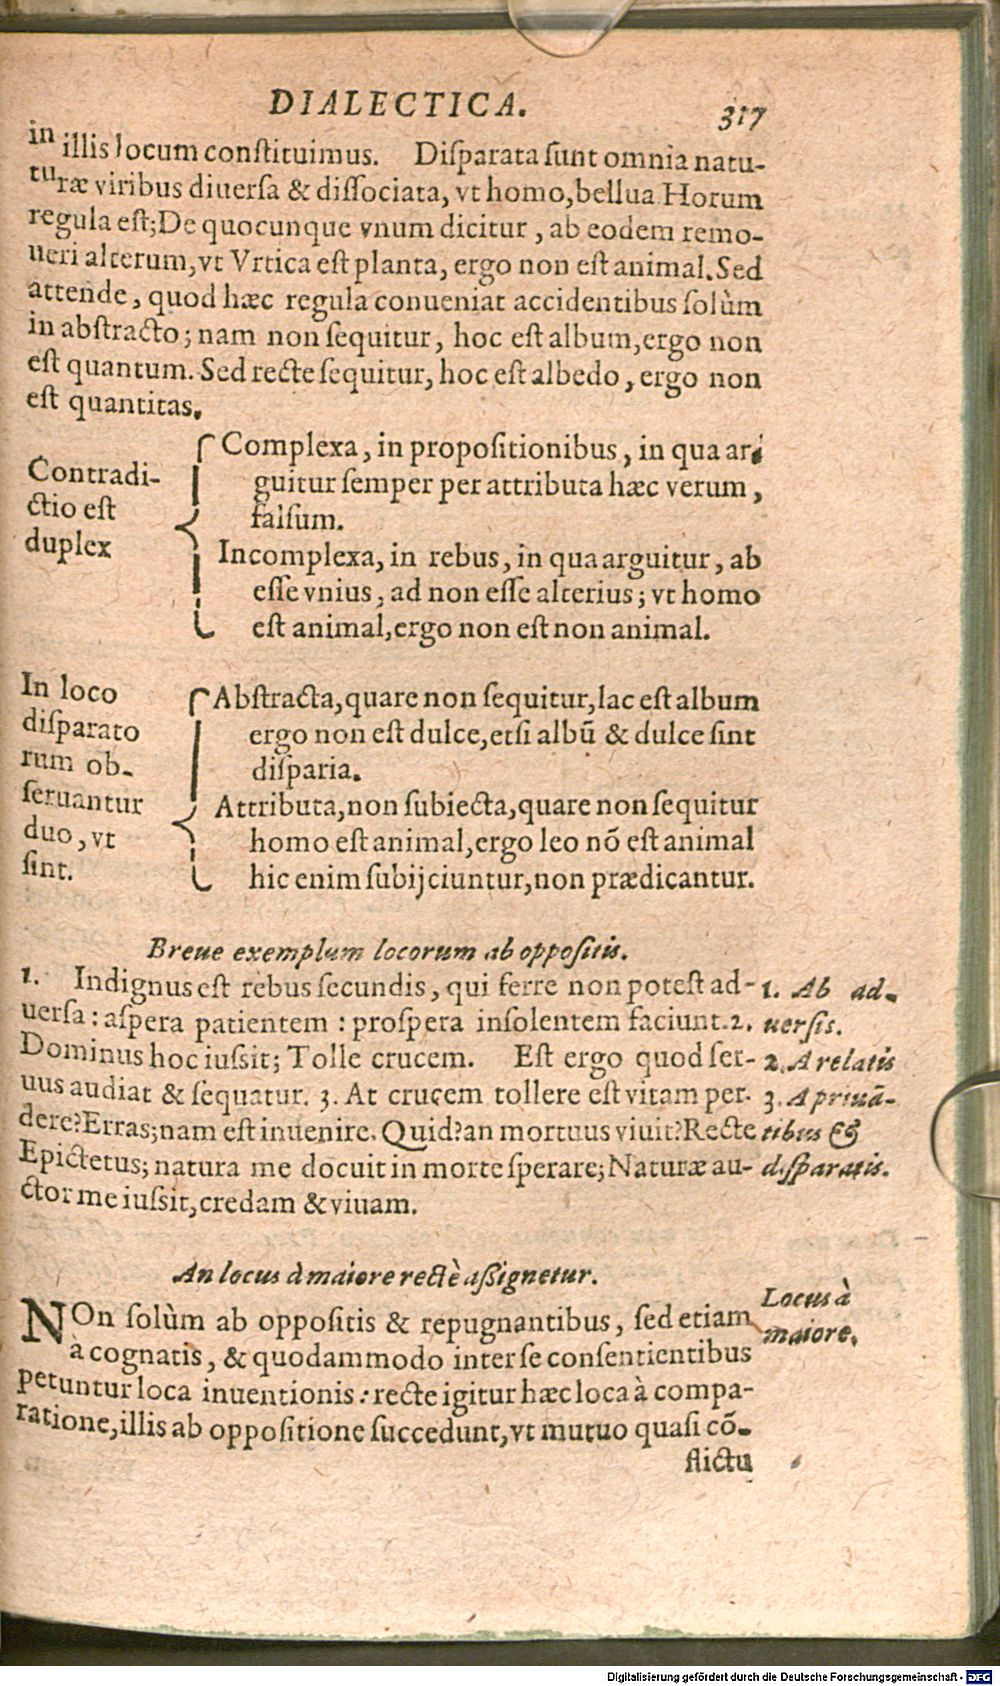 DIALECTICA. 317
in illis locum constituimus. Disparata sunt omnia natu-
turæ viribus diuersa & dissociata, vt homo, bellua Horum
regula est; De quocunque vnum dicitur, ab eodem remo-
ueri alterum, vt Vrtica est planta, ergo non est animal. Sed
attende, quod hæc regula conueniat accidentibus solùm
in abstracto; nam non sequitur, hoc est album, ergo non
est quantum. Sed recte sequitur, hoc est albedo, ergo non
est quantitas.
Contradi-
ctio est
duplex
Complexa, in propositionibus, in qua ar-
guitur semper per attributa hæc verum,
falsum.
Incomplexa, in rebus, in qua arguitur, ab
esse vnius, ad non esse alterius; vt homo
est animal, ergo non est non animal.
In loco
disparato
rum ob-
seruantur
duo, vt
sint.
Abstracta, quare non sequitur, lac est album
ergo non est dulce, etsi albū & dulce sint
disparia.
Attributa, non subiecta, quare non sequitur
homo est animal, ergo leo nō est animal
hic enim subijciuntur, non prædicantur.
Breue exemplum locorum ab oppositis.
1. Indignus est rebus secundis, qui ferre non potest ad-
uersa: aspera patientem: prospera insolentem faciunt. 2.
Dominus hoc iussit; Tolle crucem. Est ergo quod ser-
uus audiat & sequatur. 3. At crucem tollere est vitam per-
dere? Erras; nam est inuenire. Quid? an mortuus viuit? Recte
Epictetus; natura me docuit in morte sperare; Naturæ au-
ctor me iussit, credam & viuam.
1. Ab ad-
uersis.
2. A relatis
3. A priuā-
tibus &
disparatis.
An locus à maiore rectè assignetur.
NOn solùm ab oppositis & repugnantibus, sed etiam
à cognatis, & quodammodo inter se consentientibus
petuntur loca inuentionis: recte igitur hæc loca à compa-
ratione, illis ab oppositione succedunt, vt mutuo quasi cō-
flictu
Locus à
maiore.
Digitalisierung gefördert durch die Deutsche Forschungsgemeinschaft - DFG